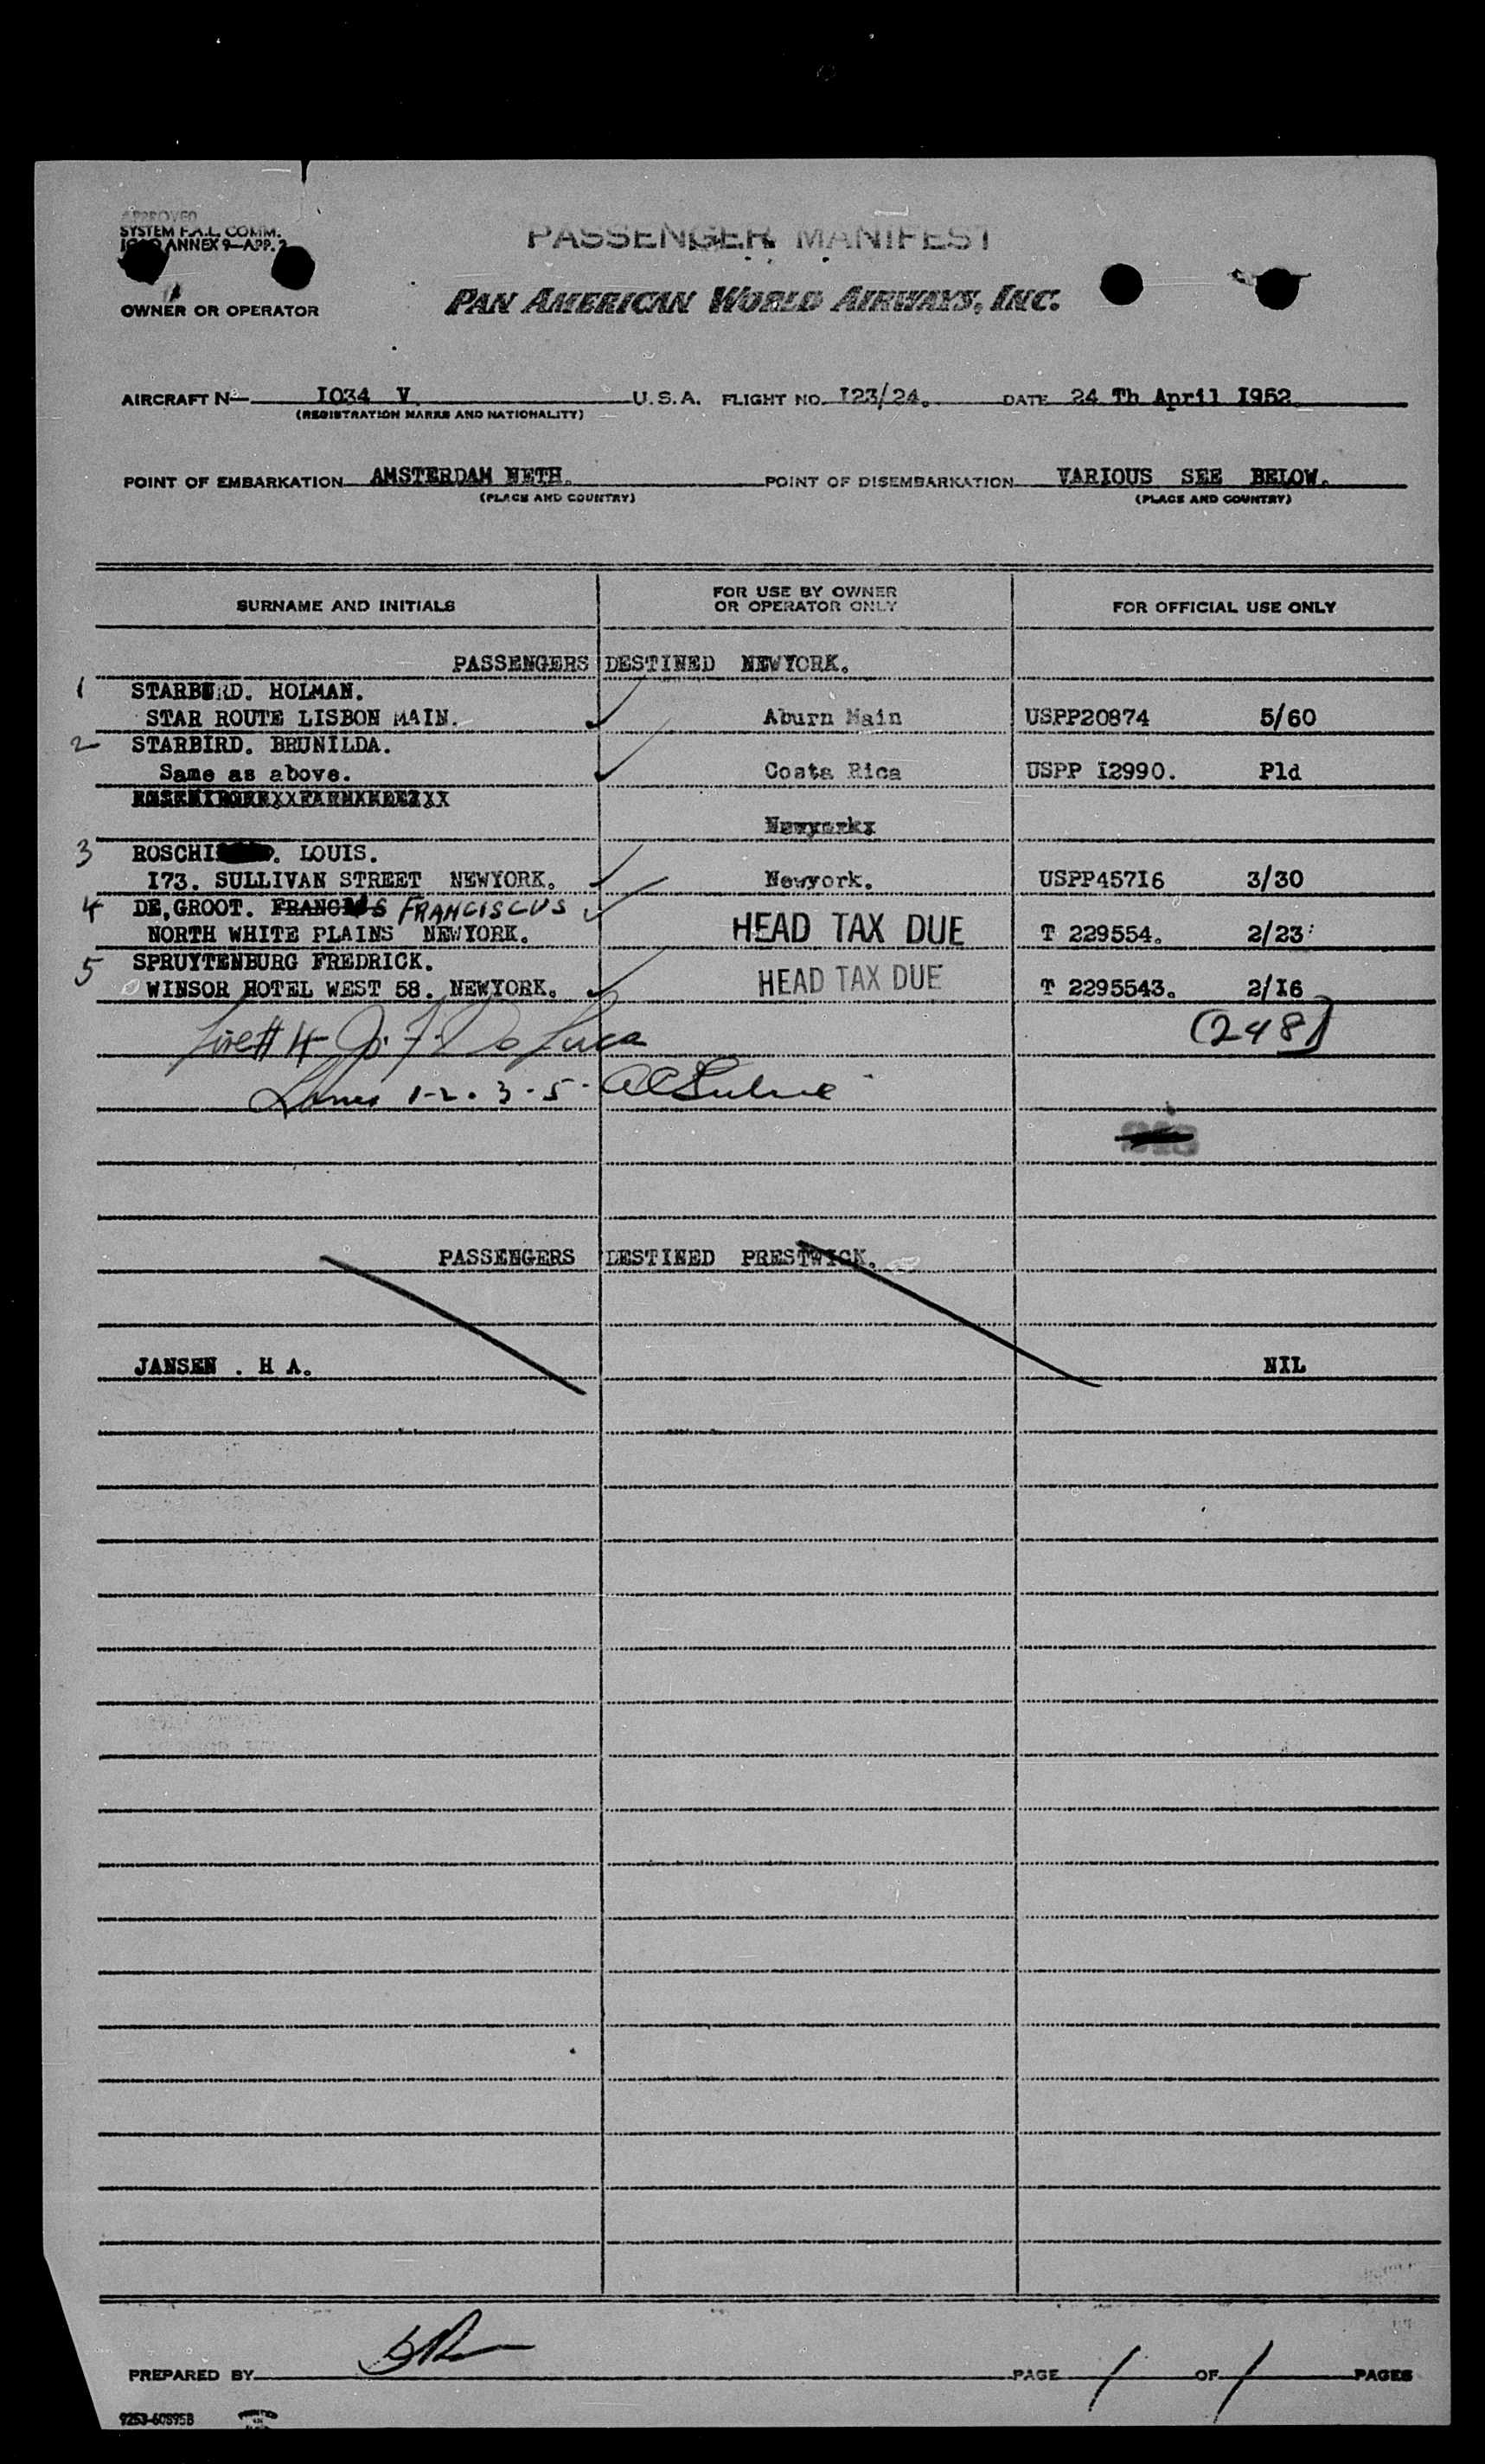 APPROVED
SYSTEM F.A.L. COMM.
ANNEX 9—APP. 2
PASSENGER MANIFEST
OWNER OR OPERATOR
PAN AMERICAN WORLD AIRWAYS, INC.
AIRCRAFT No 1034 V U.S.A. FLIGHT NO. I23/24. DATE 24 Th April I952.
(REGISTRATION MARKS AND NATIONALITY)
POINT OF EMBARKATION AMSTERDAM NETH. POINT OF DISEMBARKATION VARIOUS SEE BELOW.
(PLACE AND COUNTRY) (PLACE AND COUNTRY)
SURNAME AND INITIALS FOR USE BY OWNER OR OPERATOR ONLY FOR OFFICIAL USE ONLY
PASSENGERS DESTINED NEWYORK.
1 STARBURD. HOLMAN.
STAR ROUTE LISBON MAIN. Aburn Main USPP20874 5/60
2 STARBIRD. BRUNILDA.
Same as above. Costa Rica USPP I2990. Pld
Newyorkx
3 ROSCHI. LOUIS.
I73. SULLIVAN STREET NEWYORK. Newyork. USPP457I6 3/30
4 DE,GROOT. FRANCIS FRANCISCUS
NORTH WHITE PLAINS NEWYORK. HEAD TAX DUE T 229554. 2/23
5 SPRUYTENBURG FREDRICK.
WINSOR HOTEL WEST 58. NEWYORK. HEAD TAX DUE T 2295543. 2/I6
(248)
Line # 4 J. F. De Luca
Lines 1-2.3-5-
PASSENGERS DESTINED PRESTWICK.
JANSEN . H A. NIL
PREPARED BY PAGE 1 OF 1 PAGES
9253-60895B